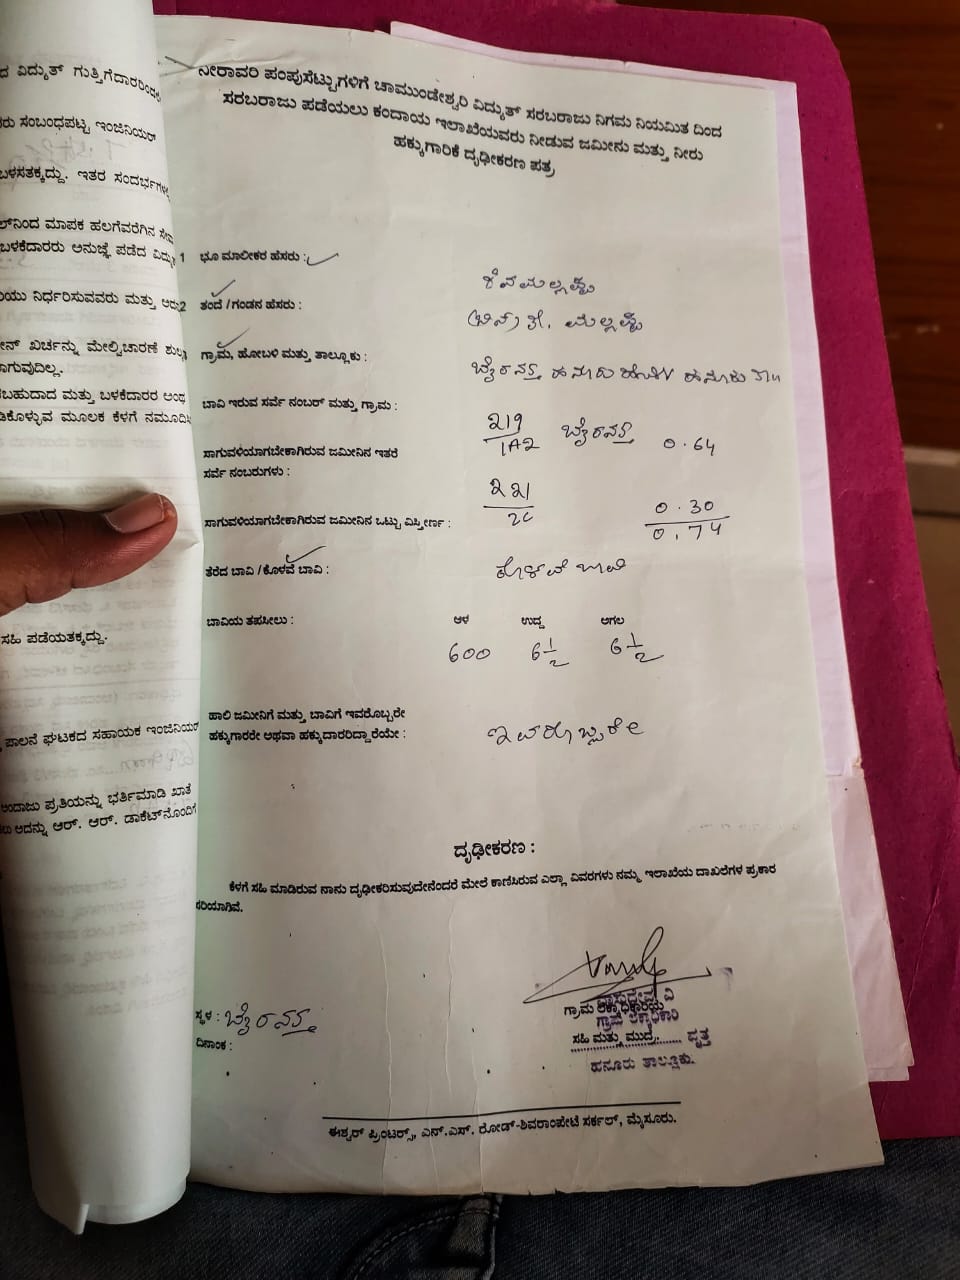 ದ ವಿದ್ಯುತ್ ಗುತ್ತಿಗೆದಾರರಿಂದಲೇ
ರು ಸಂಬಂಧಪಟ್ಟ ಇಂಜಿನಿಯರ್
ಬಳಸತಕ್ಕದ್ದು. ಇತರ ಸಂದರ್ಭಗಳಲ್ಲಿ
ಲ್‌ನಿಂದ ಮಾಪಕ ಹಲಗೆವರೆಗಿನ ಸೇವಾ
ಬಳಕೆದಾರರು ಅನುಚ್ಛೆ ಪಡೆದ ವಿದ್ಯುತ್
ಯು ನಿರ್ಧರಿಸುವವರು ಮತ್ತು ಅದು
ೀನ್ ಖರ್ಚನ್ನು ಮೇಲ್ವಿಚಾರಣೆ ಶುಲ್ಕ
ಾಗುವುದಿಲ್ಲ.
ಬಹುದಾದ ಮತ್ತು ಬಳಕೆದಾರರ ಅಂಥ
ಡಿಕೊಳ್ಳುವ ಮೂಲಕ ಕೆಳಗೆ ನಮೂದಿಸಿ
ಸಹಿ ಪಡೆಯತಕ್ಕದ್ದು.
ಪಾಲನೆ ಘಟಕದ ಸಹಾಯಕ ಇಂಜಿನಿಯರ್
ಅಂದಾಜು ಪ್ರತಿಯನ್ನು ಭರ್ತಿಮಾಡಿ ಖಾತೆ
ಲು ಅದನ್ನು ಆರ್. ಆರ್. ಡಾಕೆಟ್‌ನೊಂದಿಗೆ
ನೀರಾವರಿ ಪಂಪುಸೆಟ್ಟುಗಳಿಗೆ ಚಾಮುಂಡೇಶ್ವರಿ ವಿದ್ಯುತ್ ಸರಬರಾಜು ನಿಗಮ ನಿಯಮಿತ ದಿಂದ
ಸರಬರಾಜು ಪಡೆಯಲು ಕಂದಾಯ ಇಲಾಖೆಯವರು ನೀಡುವ ಜಮೀನು ಮತ್ತು ನೀರು
ಹಕ್ಕುಗಾರಿಕೆ ದೃಢೀಕರಣ ಪತ್ರ
1 ಭೂ ಮಾಲೀಕರ ಹೆಸರು : ಶಿವಮಲ್ಲಪ್ಪ
2 ತಂದೆ / ಗಂಡನ ಹೆಸರು : ಮಲ್ಲಪ್ಪ
ಗ್ರಾಮ, ಹೋಬಳಿ ಮತ್ತು ತಾಲ್ಲೂಕು : ಬೈರನತ್ತ ಹನೂರು ಹೋಬಳಿ ಹನೂರು ತಾ॥
ಬಾವಿ ಇರುವ ಸರ್ವೆ ನಂಬರ್ ಮತ್ತು ಗ್ರಾಮ : 219/1A2 ಬೈರನತ್ತ 0.64
ಸಾಗುವಳಿಯಾಗಬೇಕಾಗಿರುವ ಜಮೀನಿನ ಇತರೆ
ಸರ್ವೆ ನಂಬರುಗಳು : 221/2C 0.30
ಸಾಗುವಳಿಯಾಗಬೇಕಾಗಿರುವ ಜಮೀನಿನ ಒಟ್ಟು ವಿಸ್ತೀರ್ಣ : 0.74
ತೆರೆದ ಬಾವಿ / ಕೊಳವೆ ಬಾವಿ : ಕೊಳವೆ ಬಾವಿ
ಬಾವಿಯ ತಪಸೀಲು : ಆಳ ಉದ್ದ ಅಗಲ
600 6½ 6½
ಹಾಲಿ ಜಮೀನಿಗೆ ಮತ್ತು ಬಾವಿಗೆ ಇವರೊಬ್ಬರೇ
ಹಕ್ಕುಗಾರರೇ ಅಥವಾ ಹಕ್ಕುದಾರರಿದ್ದಾರೆಯೇ : ಇವರೊಬ್ಬರೇ
ದೃಢೀಕರಣ :
ಕೆಳಗೆ ಸಹಿ ಮಾಡಿರುವ ನಾನು ದೃಢೀಕರಿಸುವುದೇನೆಂದರೆ ಮೇಲೆ ಕಾಣಿಸಿರುವ ಎಲ್ಲಾ ವಿವರಗಳು ನಮ್ಮ ಇಲಾಖೆಯ ದಾಖಲೆಗಳ ಪ್ರಕಾರ
ಸರಿಯಾಗಿವೆ.
ಗ್ರಾಮ ಲೆಕ್ಕಾಧಿಕಾರಿಯ
ಗ್ರಾಮ ಲೆಕ್ಕಾಧಿಕಾರಿ
ಸ್ಥಳ : ಬೈರನತ್ತ
ಸಹಿ ಮತ್ತು ಮುದ್ರೆ ವೃತ್ತ
ದಿನಾಂಕ :
ಹನೂರು ತಾಲ್ಲೂಕು.
ಈಶ್ವರ್ ಪ್ರಿಂಟರ್ಸ್, ಎನ್.ಎಸ್. ರೋಡ್-ಶಿವರಾಂಪೇಟೆ ಸರ್ಕಲ್, ಮೈಸೂರು.